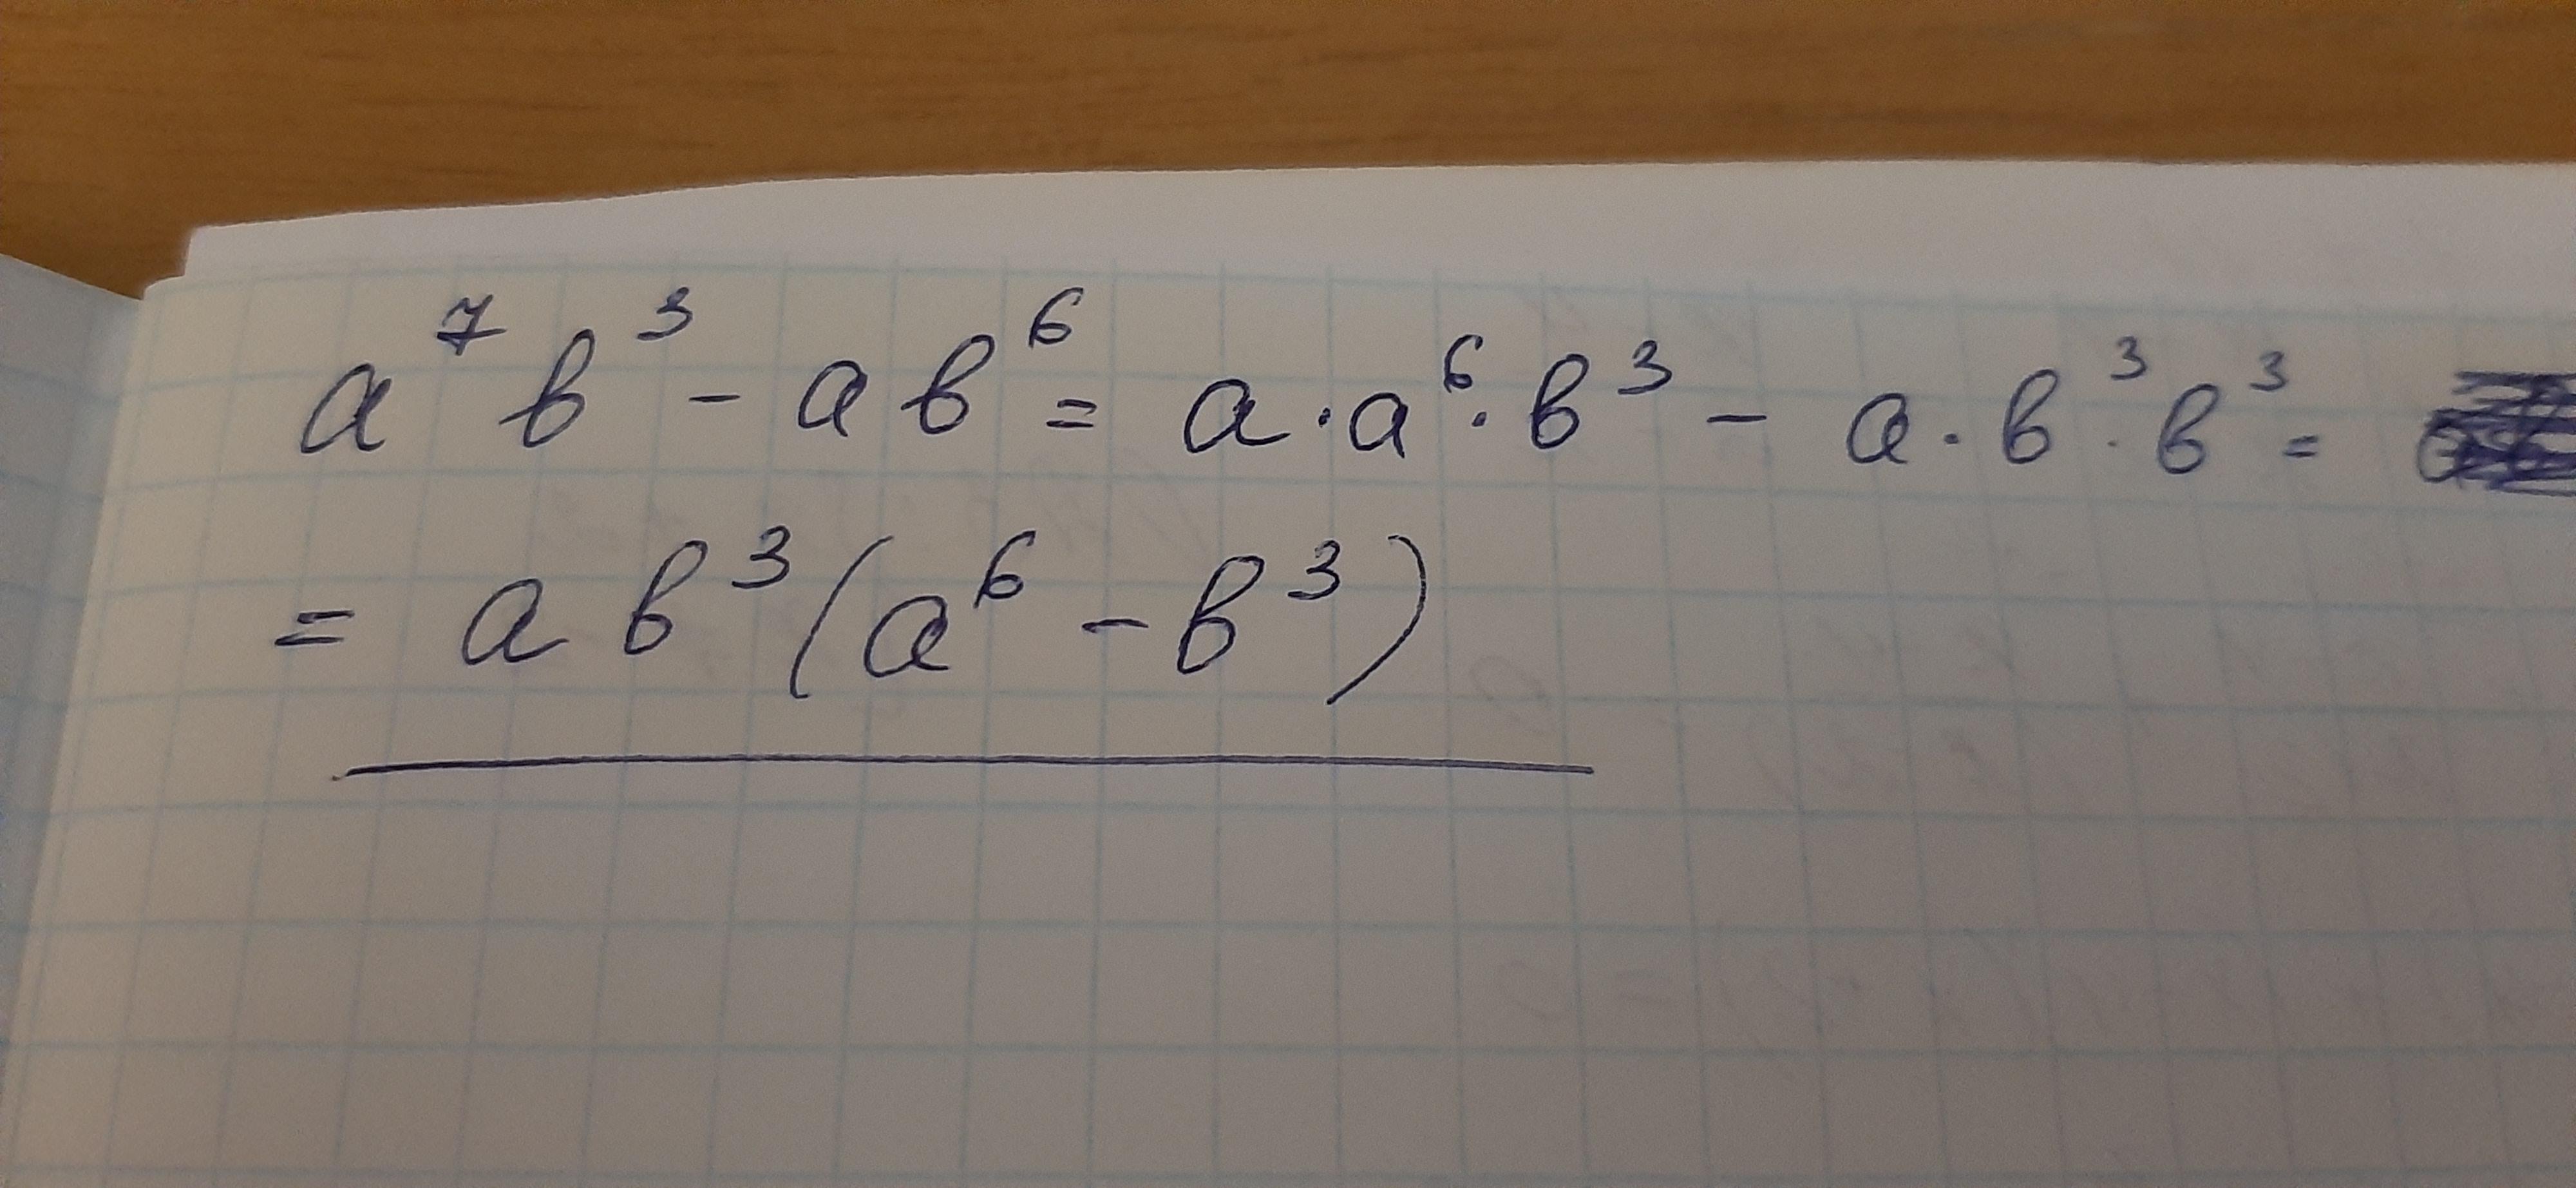 a⁷b³ - ab⁶ = a·a⁶·b³ - a·b³·b³ =
= ab³(a⁶ - b³)